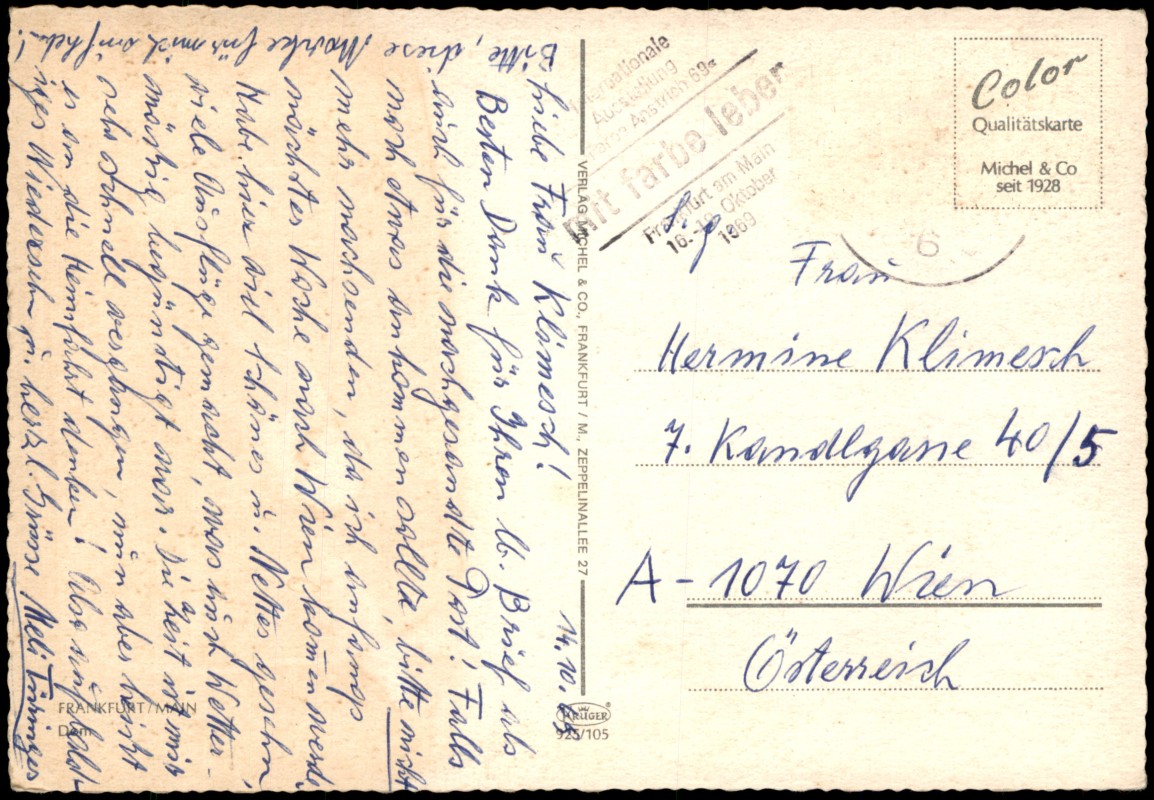 Bitte, diese Marke für mich aufheben!
14.10.69
Liebe Frau Klimesch!
Besten Dank für Ihren lb. Brief als
auch für die nachgesandte Post! Falls
noch etwas ankommen sollte, bitte nicht
mehr nachsenden, da ich anfangs
nächster Woche nach Wien kommen werde.
Habe hier viel Schönes u. Nettes gesehen,
viele Ausflüge gemacht, was auch wetter-
mässig begünstigt war. Die Zeit ist mir
sehr schnell vergangen, nun aber heisst
es an die Heimfahrt denken! Also auf bald-
iges Wiedersehn u. herzl. Grüsse Meli
FRANKFURT/MAIN
Dom
VERLAG MICHEL & CO., FRANKFURT / M., ZEPPELINALLEE 27
KRÜGER
925/105
Internationale
Ausstellung
Farbe Anstrich 69
mit farbe leben
Frankfurt am Main
Oktober
1969
Color
Qualitätskarte
Michel & Co
seit 1928
6
Frau
Hermine Klimesch
7. Kandlgasse 40/5
A-1070 Wien
Österreich